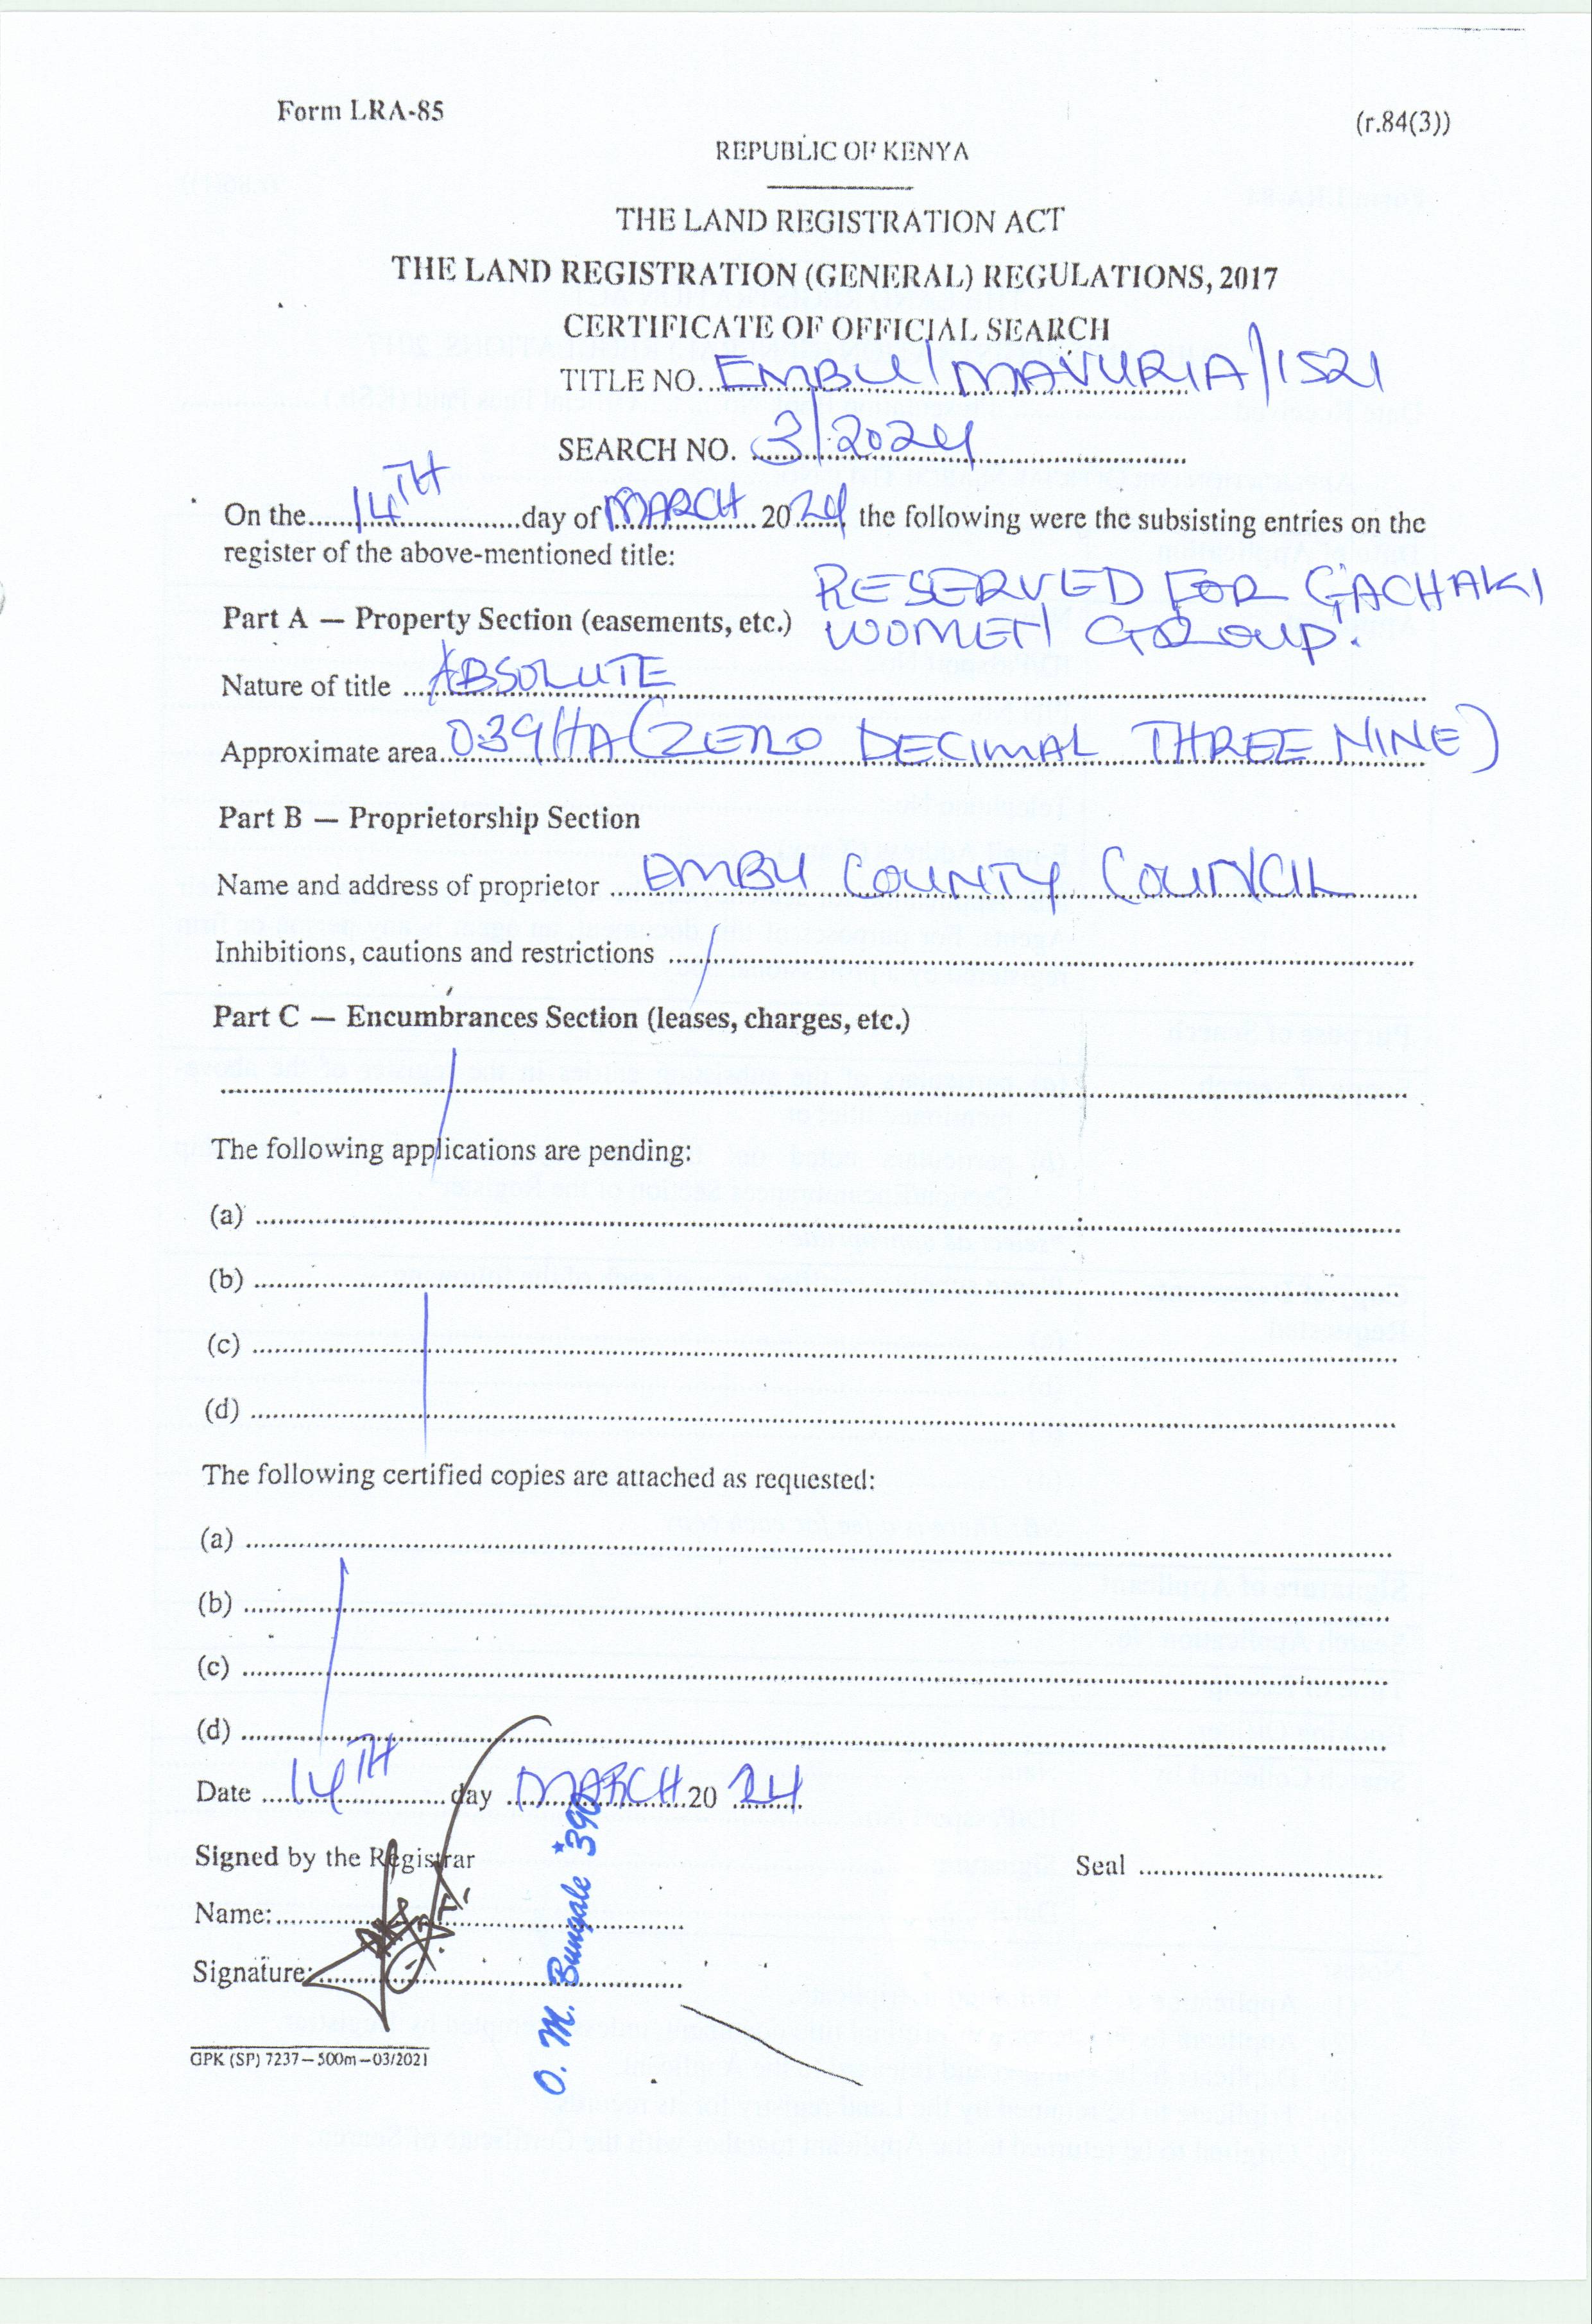 Form LRA-85
(r.84(3))
REPUBLIC OF KENYA
THE LAND REGISTRATION ACT
THE LAND REGISTRATION (GENERAL) REGULATIONS, 2017
CERTIFICATE OF OFFICIAL SEARCH
TITLE NO. EMBU/MAVURIA/1521
SEARCH NO. 3/2024
On the 14TH day of MARCH 2024 the following were the subsisting entries on the
register of the above-mentioned title:
Part A — Property Section (easements, etc.) RESERVED FOR GACHAKI
WOMEN GROUP.
Nature of title ABSOLUTE
Approximate area 0.39HA (ZERO DECIMAL THREE NINE)
Part B — Proprietorship Section
Name and address of proprietor EMBU COUNTY COUNCIL
Inhibitions, cautions and restrictions /
Part C — Encumbrances Section (leases, charges, etc.)
The following applications are pending:
(a)
(b)
(c)
(d)
The following certified copies are attached as requested:
(a)
(b)
(c)
(d)
Date 14TH day MARCH 2024
Signed by the Registrar
Seal
Name:
Signature:
O. M. Bungale *390
GPK (SP) 7237—500m—03/2021